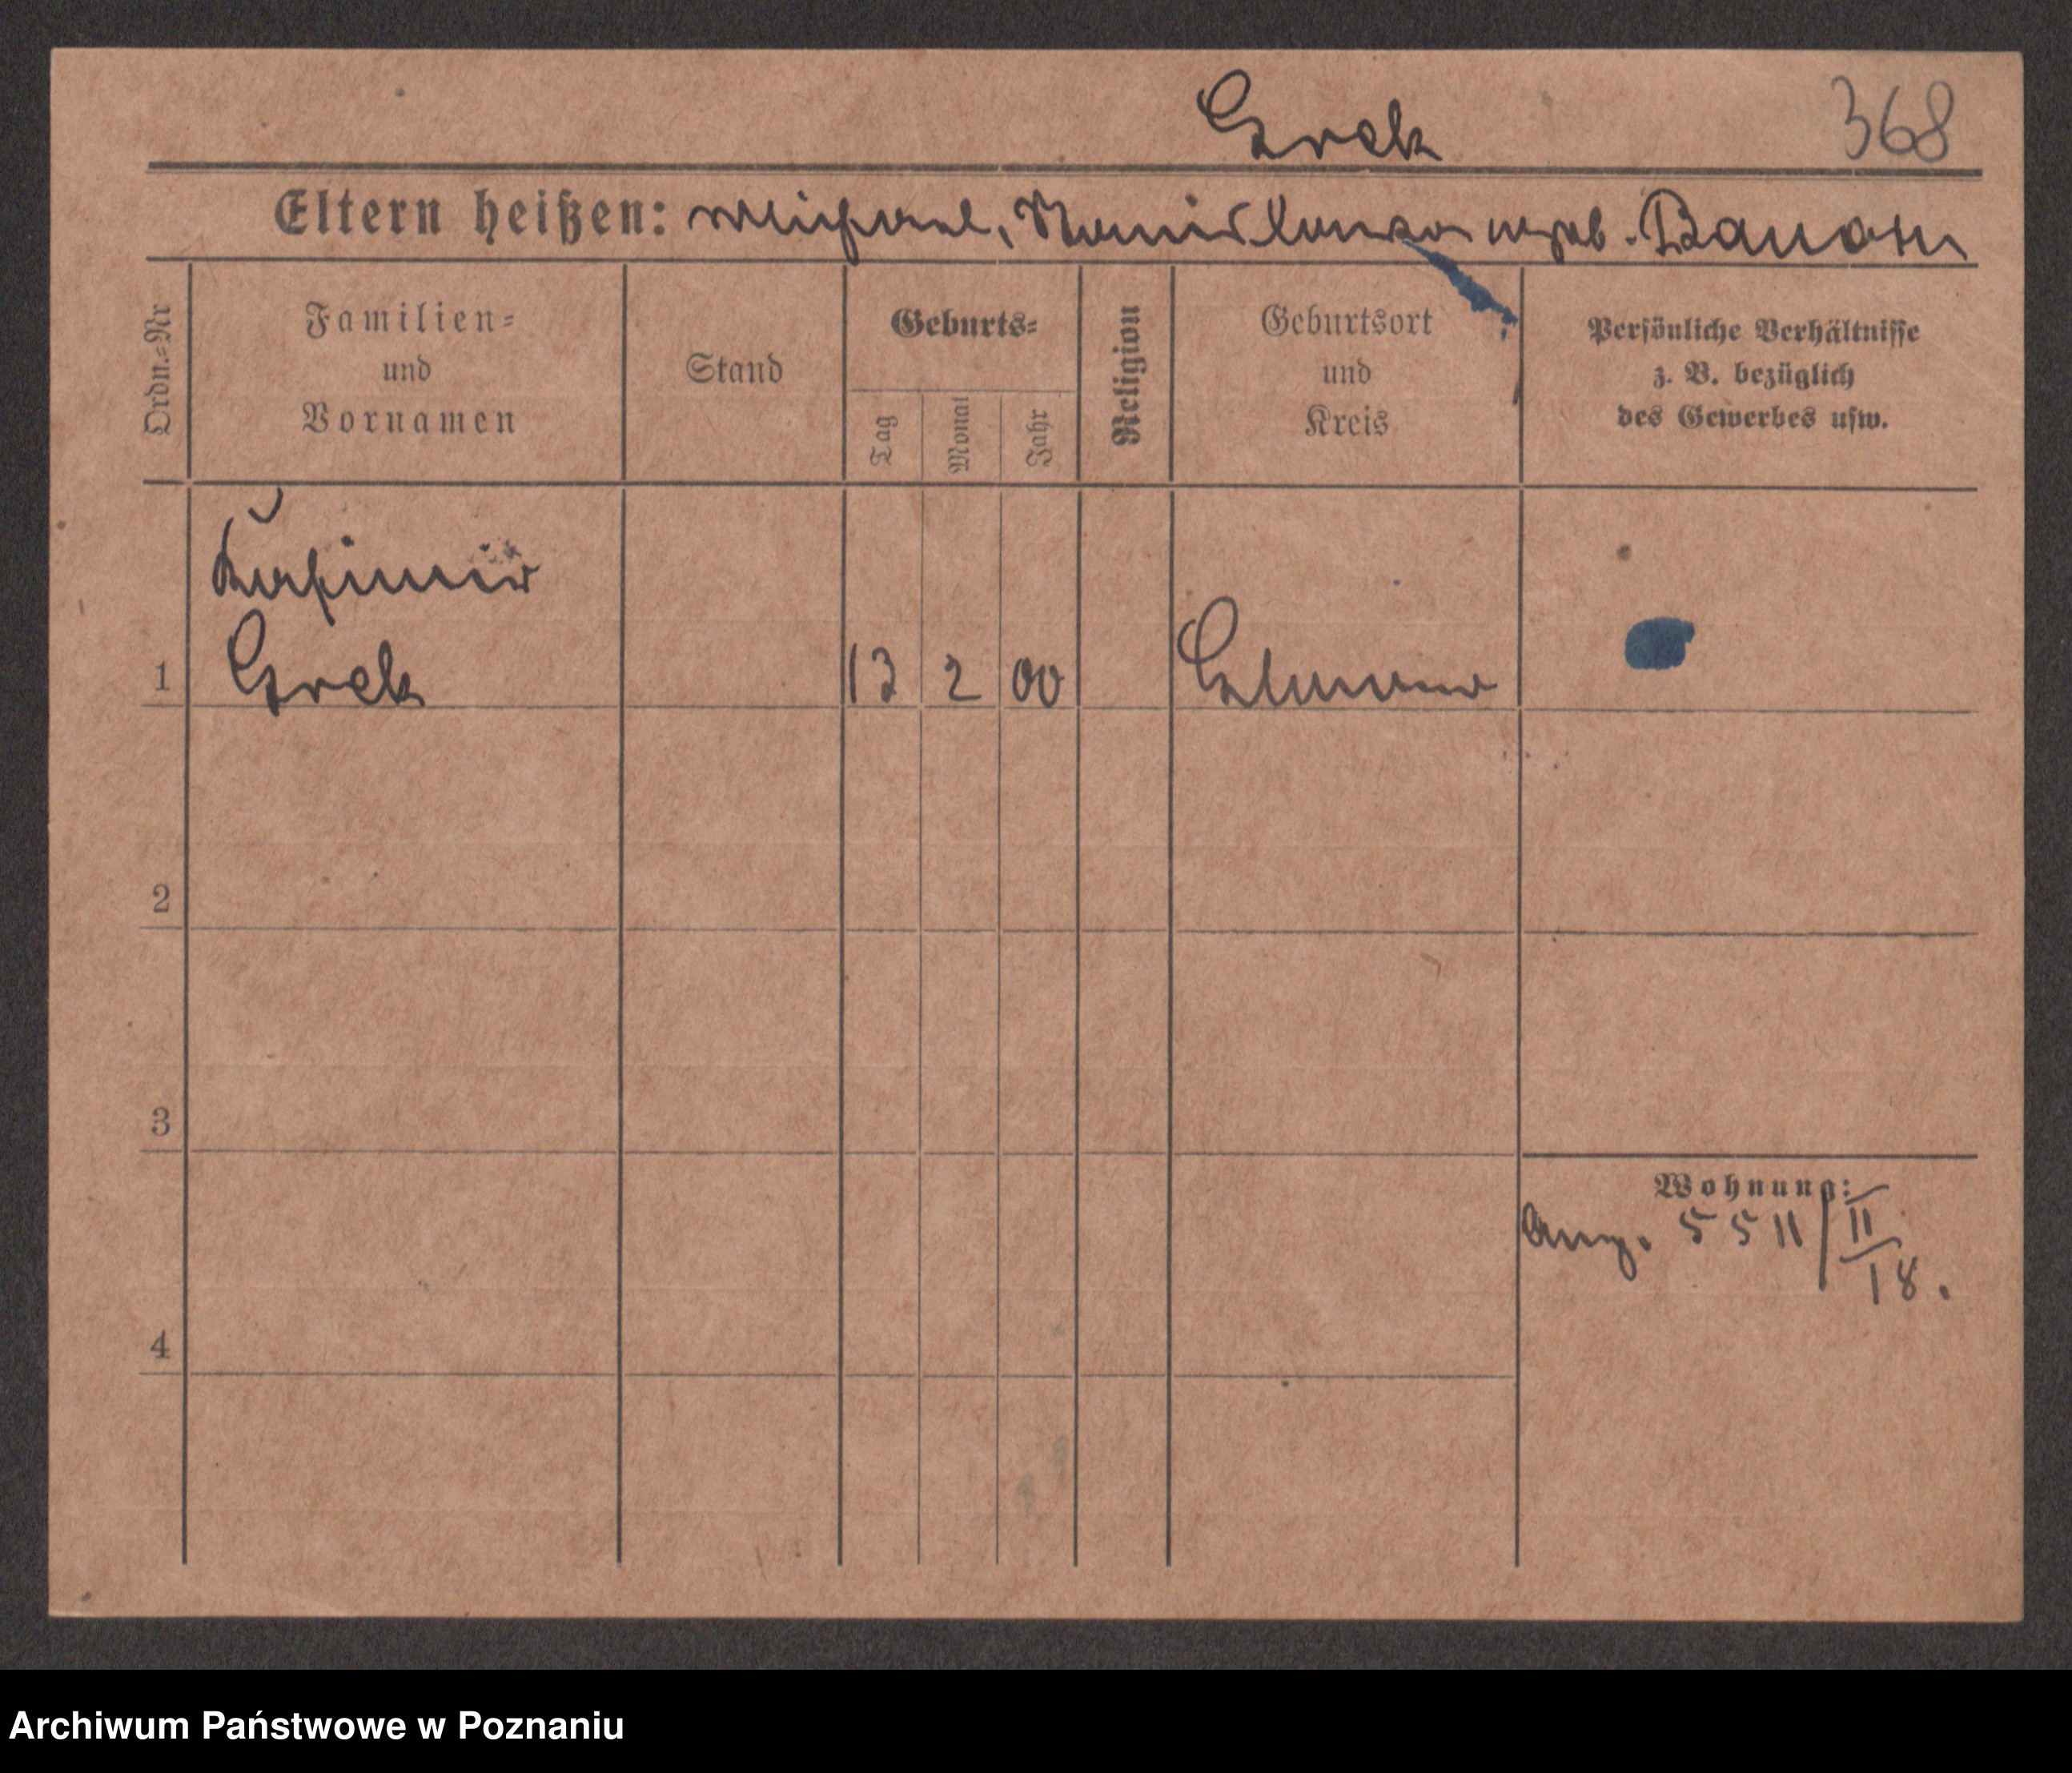 Grek
368
Eltern heißen: Michael, Stanislawa geb. Banach
Ordn.=Nr
Familien=
und
Vornamen
Stand
Geburts=
Tag
Monat
Jahr
Religion
Geburtsort
und
Kreis
Persönliche Verhältnisse
z. B. bezüglich
des Gewerbes usw.
Kasimir
1 Grek 13 2 00
2
3
Wohnung:
Ang. 5511/II
18.
4
Archiwum Państwowe w Poznaniu